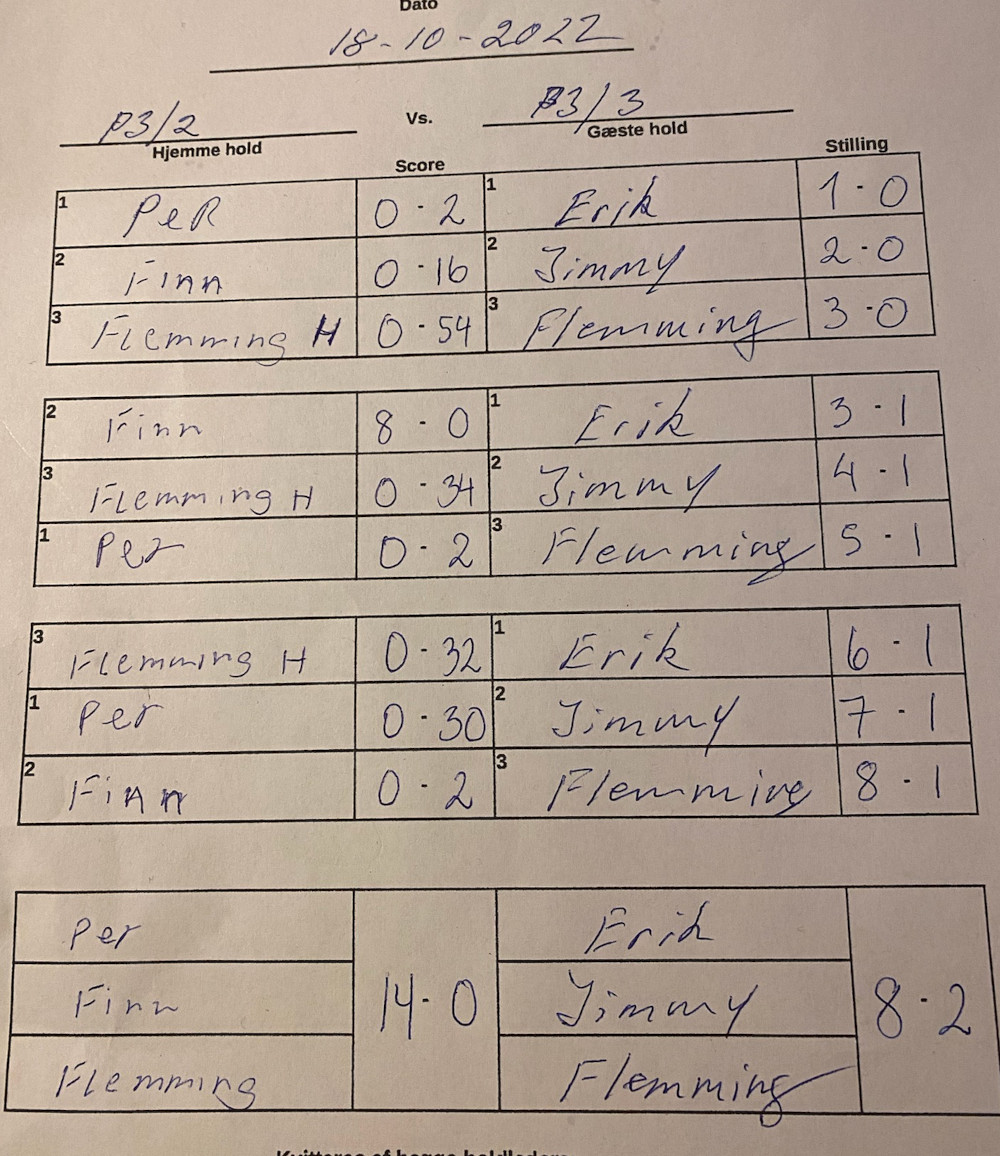 Dato
18-10-2022
P3/2 Vs. P3/3
Hjemme hold Gæste hold
Score Stilling
1 PeR 0 - 2 1 Erik 1 - 0
2 Finn 0 - 16 2 Jimmy 2 - 0
3 Flemming H 0 - 54 3 Flemming 3 - 0
2 Finn 8 - 0 1 Erik 3 - 1
3 Flemming H 0 - 34 2 Jimmy 4 - 1
1 Per 0 - 2 3 Flemming 5 - 1
3 Flemming H 0 - 32 1 Erik 6 - 1
1 Per 0 - 30 2 Jimmy 7 - 1
2 Finn 0 - 2 3 Flemming 8 - 1
Per Erik
Finn 14 - 0 Jimmy 8 - 2
Flemming Flemming